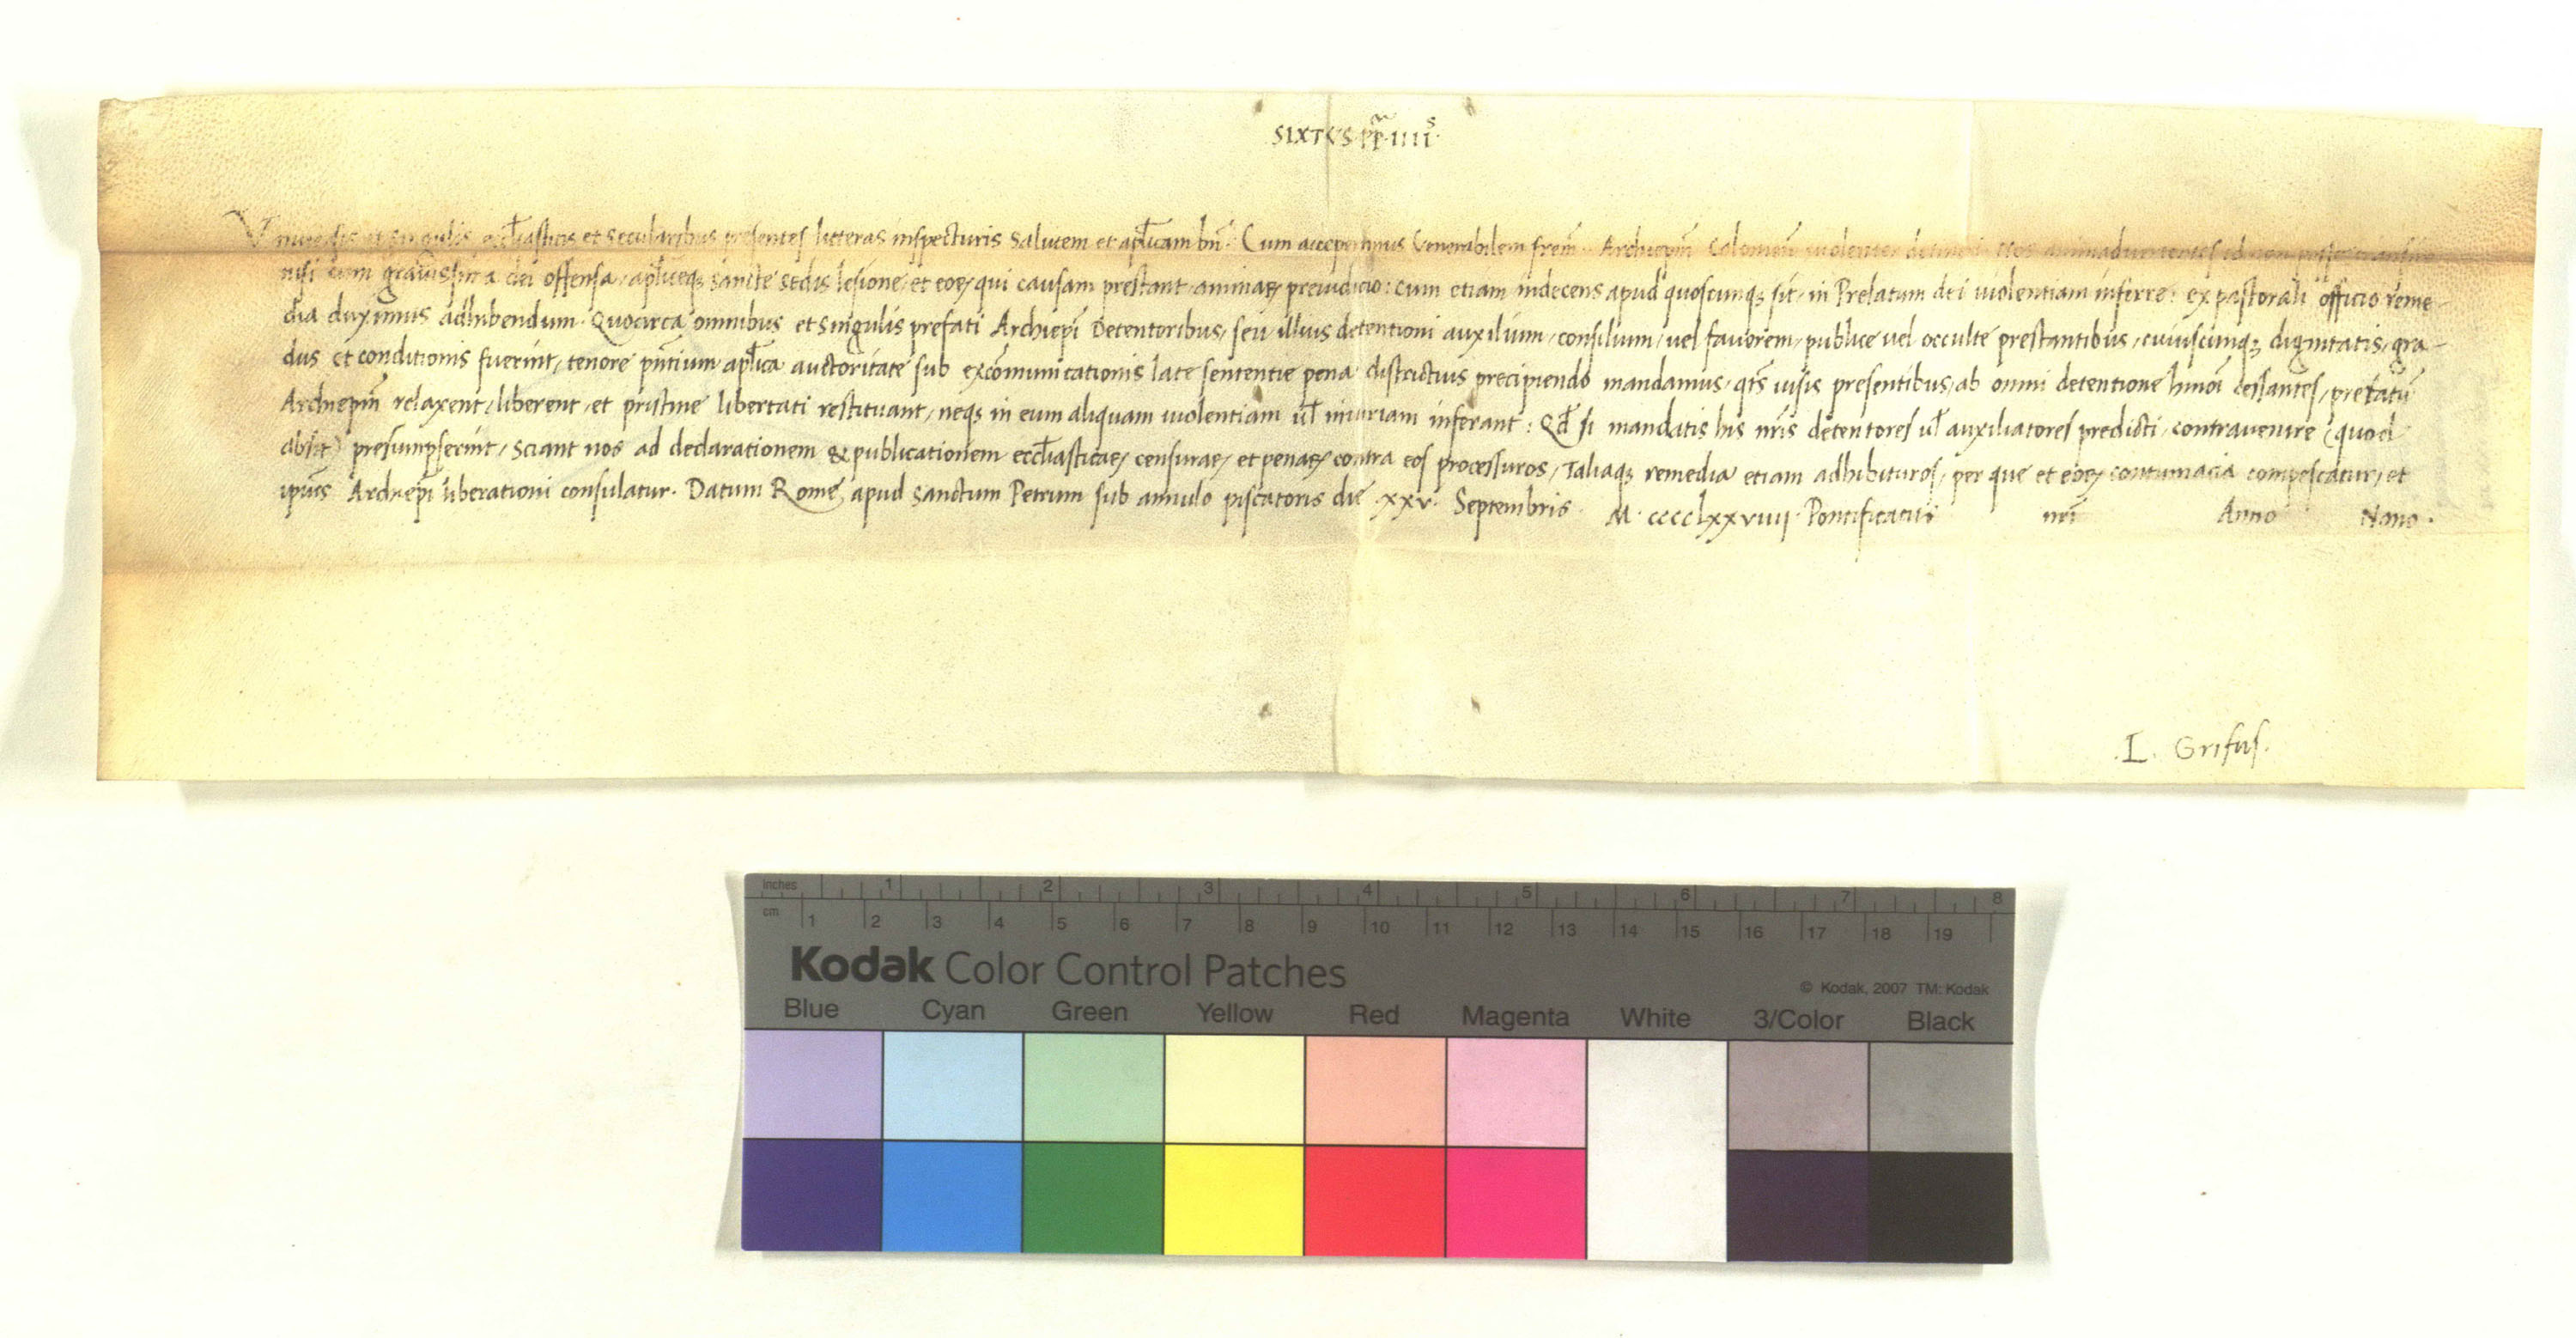 SIXTUS PP̃ IIIIˢ.
Universis et singulis eccl̃iasticis et secularibus presentes litteras inspecturis Salutem et apl̃icam bñ. Cum acceperimus Venerabilem frem̃ Archiepm̃ violenter detineri Nos animadvertentes id non posse
nisi cum gravissima dei offensa, apl̃iceqꝫ sancte sedis lesione, et eoꝝ qui causam prestant, animaꝝ preiudicio: cum etiam indecens apud quoscunqꝫ sit, in Prelatum dei violentiam inferre: ex pastorali officio reme-
dia duximus adhibendum. Quocirca omnibus et singulis prefati Archiepĩ Detentoribus, seu illius detentioni auxilium, consilium, vel favorem, publice vel occulte prestantibus, cuiuscunqꝫ dignitatis, gra-
dus et conditionis fuerint, tenore pñtium apl̃ica auctoritate sub excõmunicationis late sententie pena districtius precipiendo mandamus, qt̃s visis presentibus, ab omni detentione hm̃oi cessantes, prefatũ
Archiepm̃ relaxent, liberent, et pristine libertati restituant, neqꝫ in eum aliquam violentiam ul̃ iniuriam inferant: Qđ si mandatis his nr̃is detentores ul̃ auxiliatores predicti, contravenire (quod
absit) presumpserint, Sciant nos ad declarationem & publicationem eccl̃iasticaꝝ censuraꝝ, et penaꝝ contra eos processuros, Taliaqꝫ remedia etiam adhibituros, per que et eoꝝ contumacia compescatur, et
ipius Archiepĩ liberationi consulatur. Datum Rome, apud Sanctum Petrum sub annulo piscatoris die .xxv. Septembris. M. cccclxxviiij. Pontificatus nr̃i Anno Nono.
.L. Grifus.
inches 1 2 3 4 5 6 7 8
cm 1 2 3 4 5 6 7 8 9 10 11 12 13 14 15 16 17 18 19
Kodak Color Control Patches
© Kodak, 2007 TM: Kodak
Blue Cyan Green Yellow Red Magenta White 3/Color Black